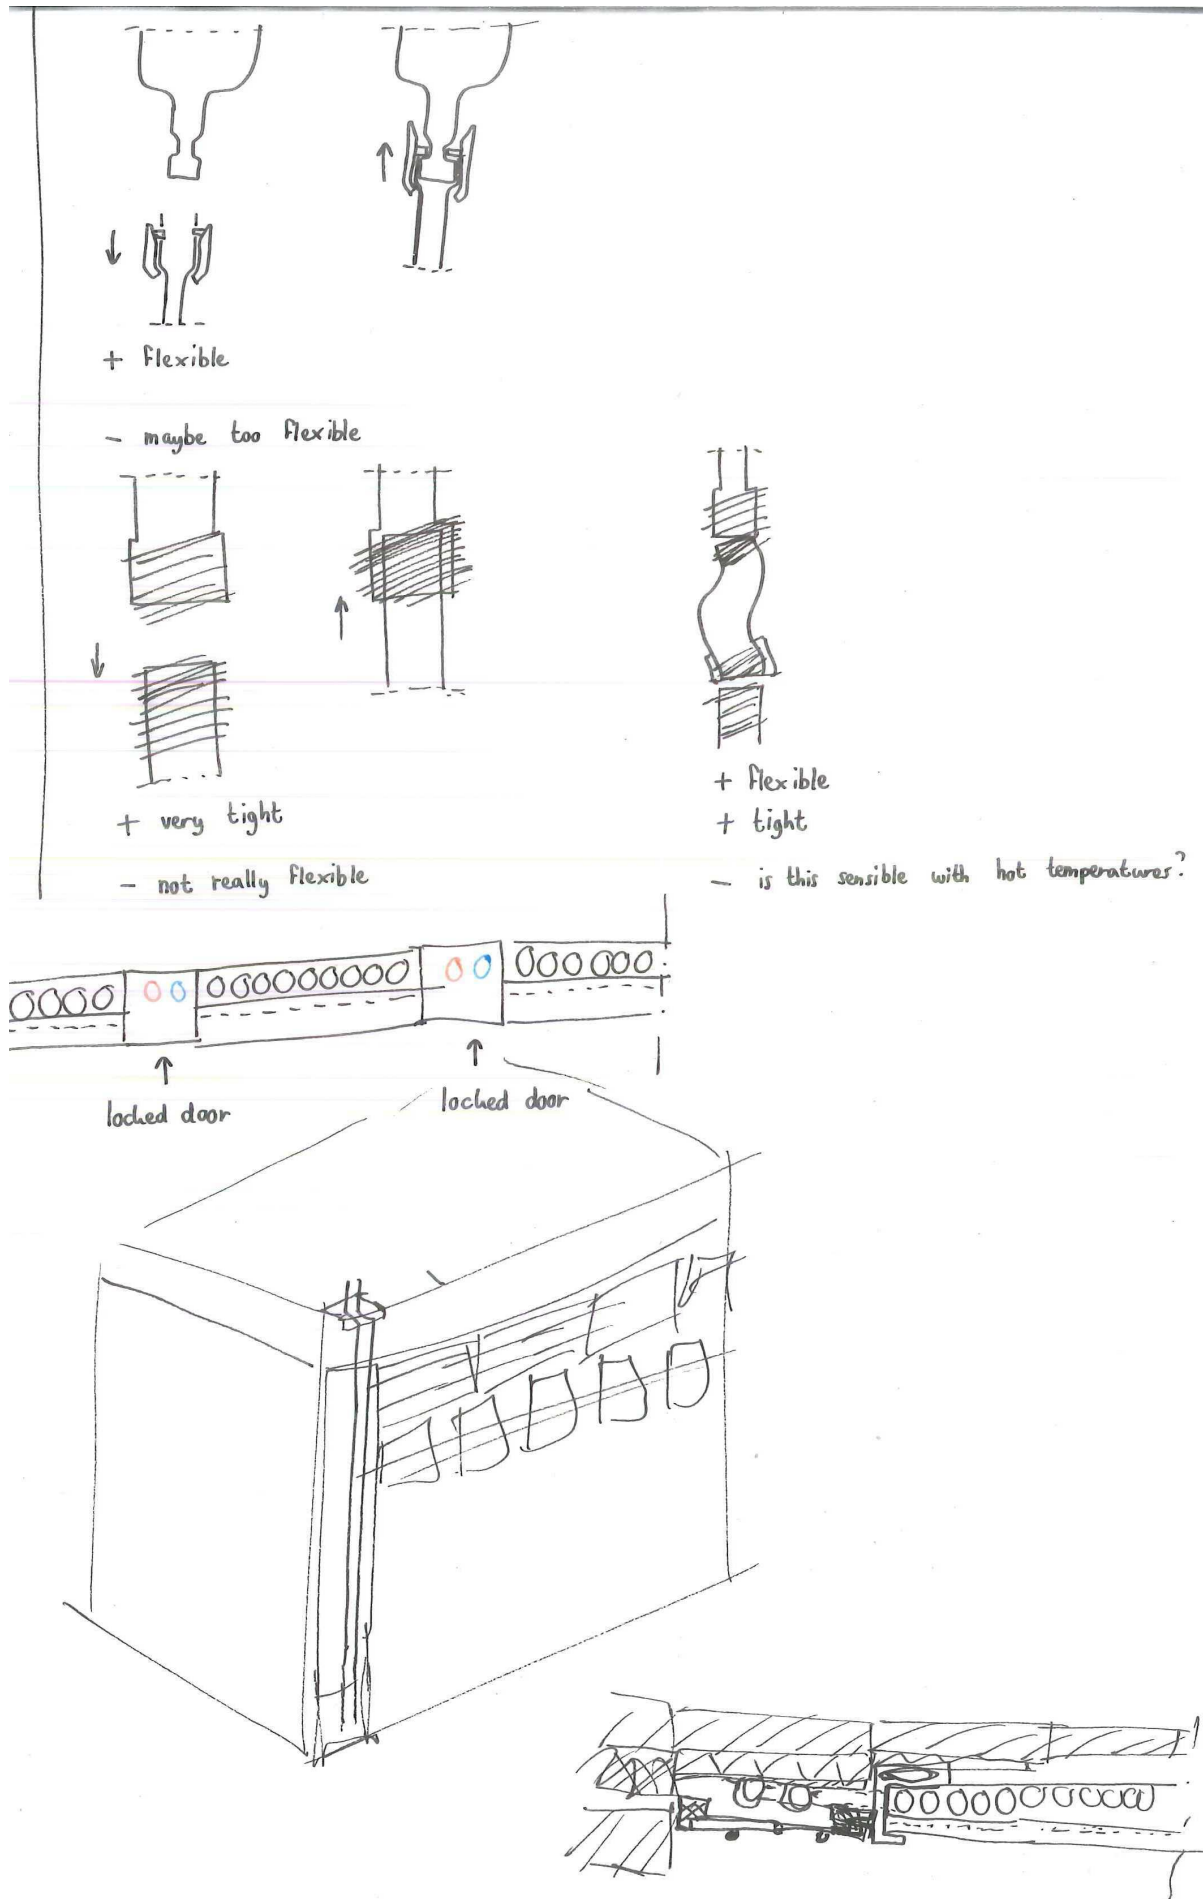 + flexible
- maybe too flexible
+ very tight
- not really flexible
+ flexible
+ tight
- is this sensible with hot temperatures?
locked door
locked door